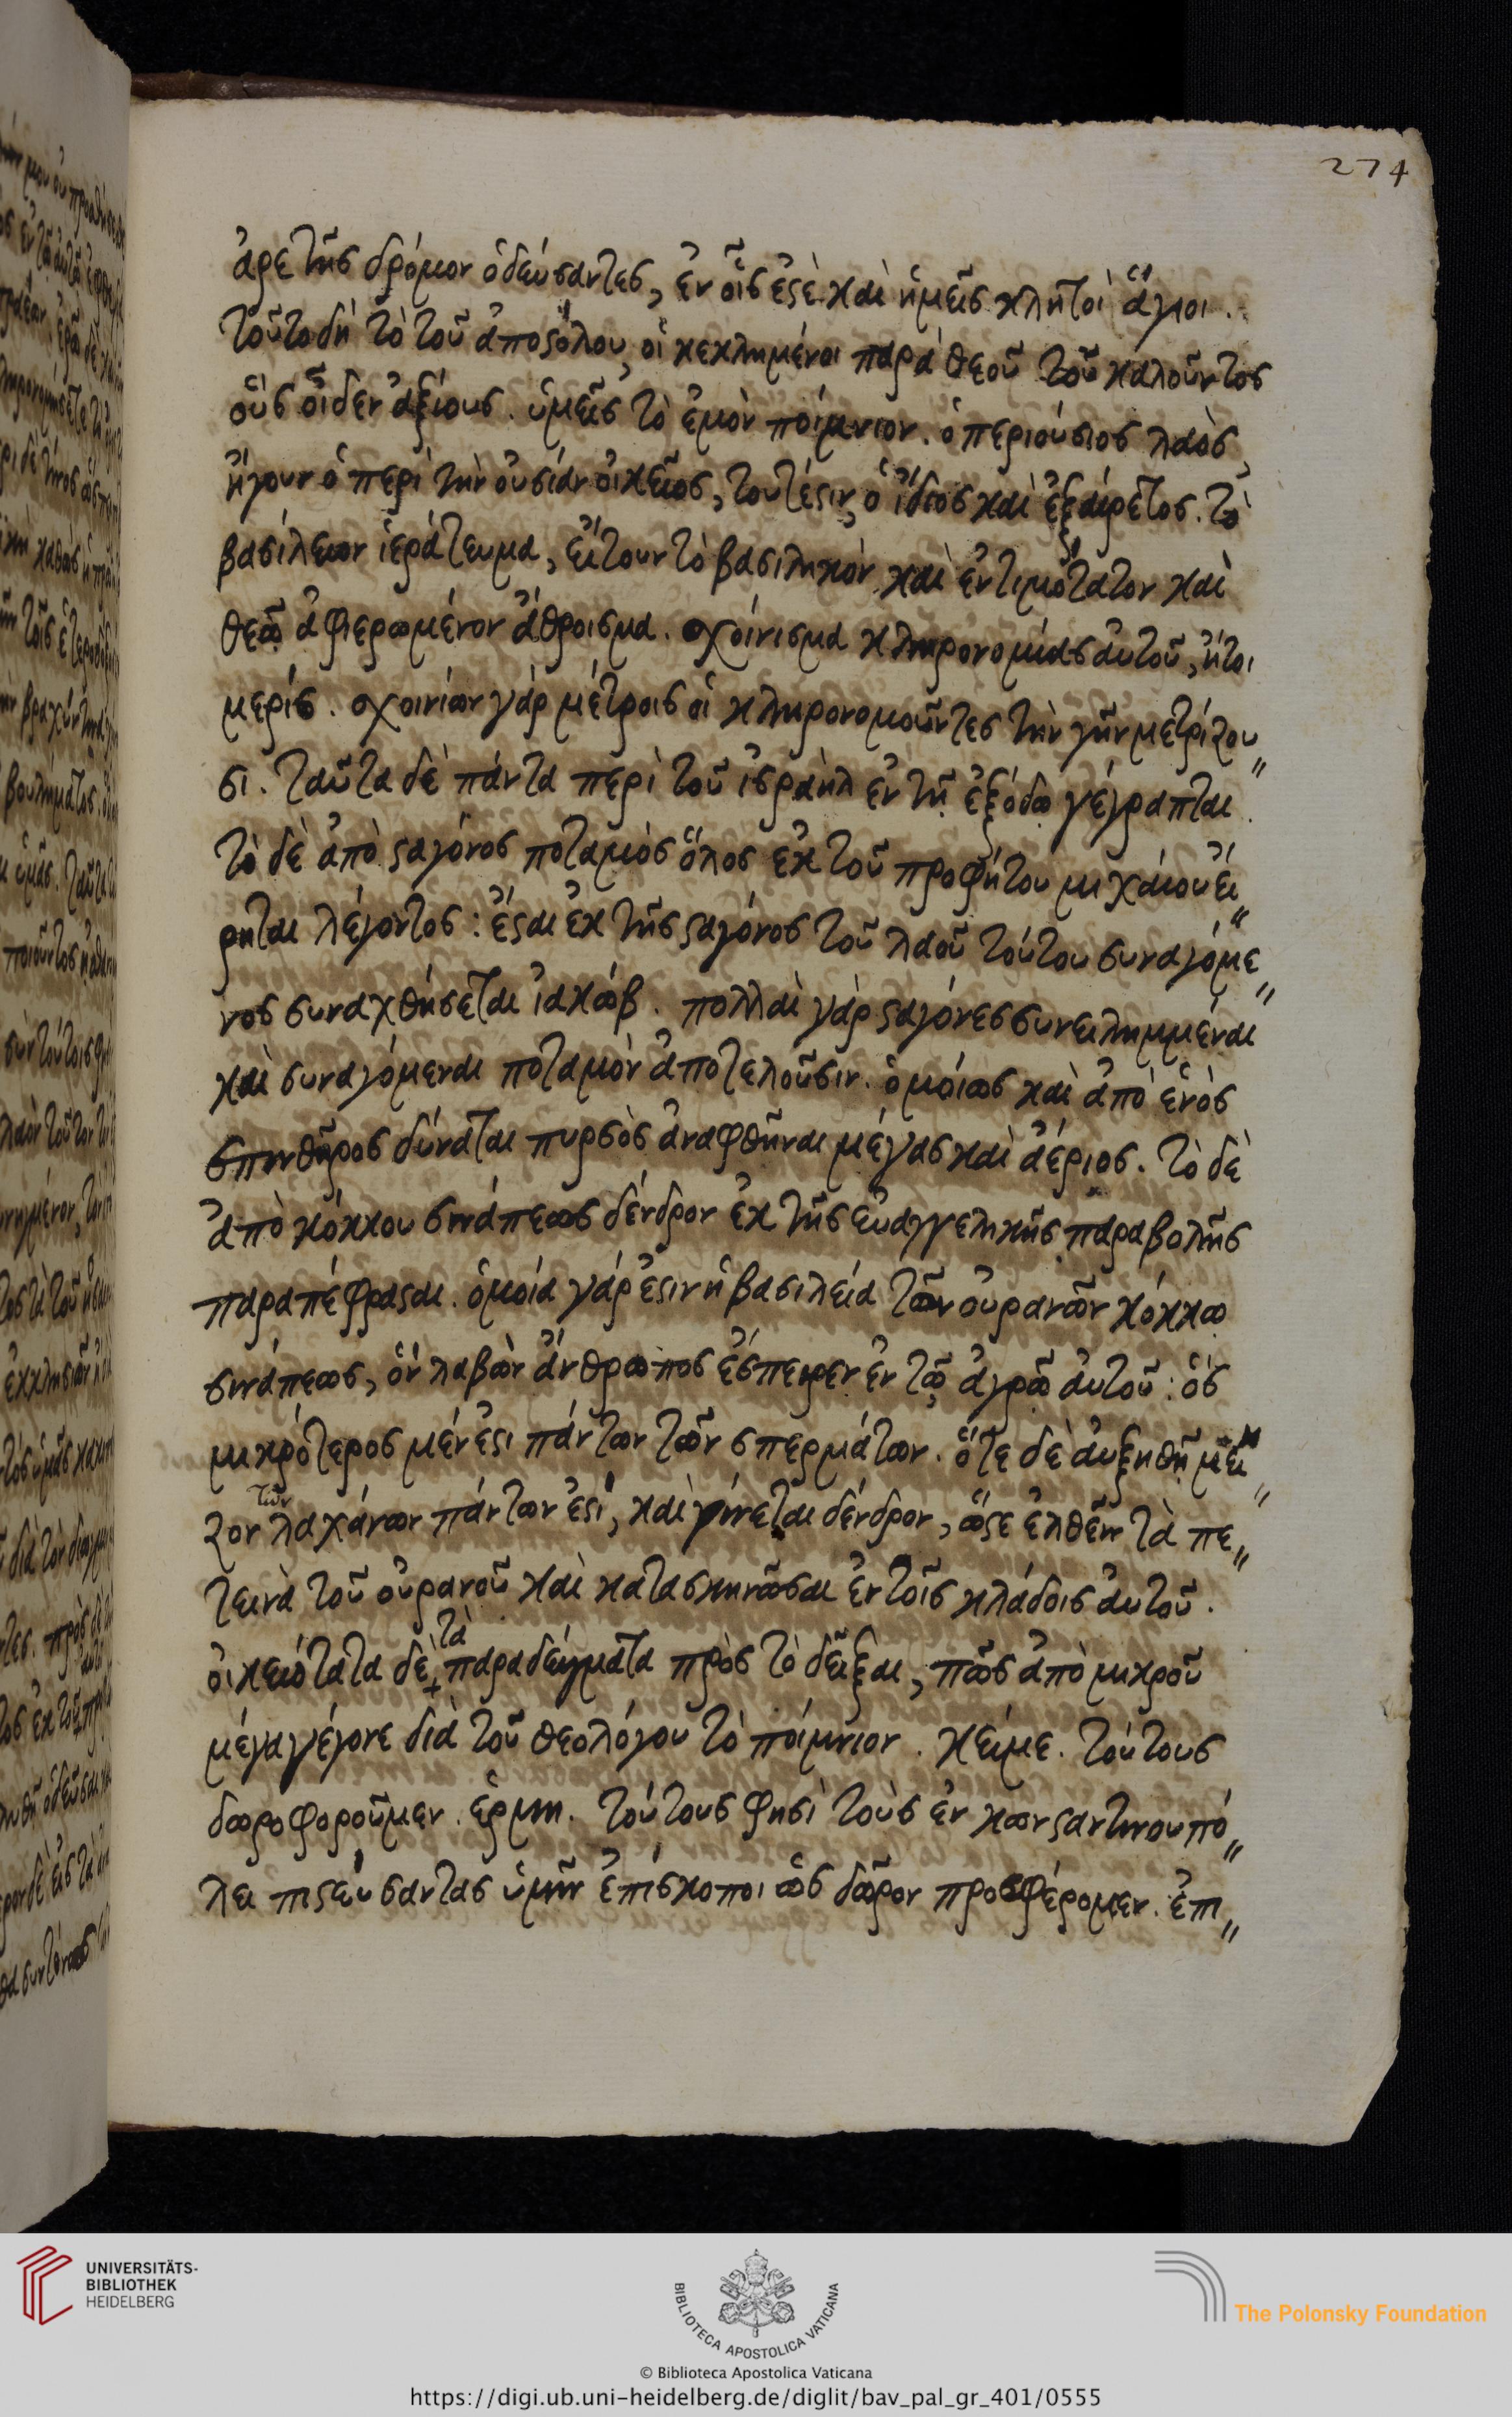 274
ἀρετῆς δρόμον ὁδεύσαντες, ἐν οἷς ἐστὲ καὶ ἡμεῖς κλητοὶ ἅγιοι.
τοῦτο δὴ τὸ τοῦ ἀποστόλου, οἱ κεκλημένοι παρὰ θεοῦ τοῦ καλοῦντος
οὓς οἶδεν ἀξίους. ὑμεῖς τὸ ἐμὸν ποίμνιον. ὁ περιούσιος λαὸς,
ἤγουν ὁ περὶ τὴν οὐσίαν οἰκεῖος, τουτέστιν, ὁ ἴδιος καὶ ἐξαίρετος. τὸ
βασίλειον ἱεράτευμα, εἴτουν τὸ βασιλικὸν καὶ ἐντιμότατον καὶ
θεῷ ἀφιερωμένον ἄθροισμα. σχοίνισμα κληρονομίας αὐτοῦ, ἤτοι
μερίς. σχοινίων γὰρ μέτροις οἱ κληρονομοῦντες τὴν γῆν μετρίζου〃
σι. ταῦτα δὲ πάντα περὶ τοῦ ἰσραὴλ ἐν τῇ ἐξόδῳ γέγραπται.
τὸ δὲ ἀπὸ σταγόνος ποταμὸς ὅλος ἐκ τοῦ προφήτου μιχαίου εἴ〃
ρηται λέγοντος: ἔσται ἐκ τῆς σταγόνος τοῦ λαοῦ τούτου συναγόμε〃
νος συναχθήσεται ἰακώβ. πολλαὶ γὰρ σταγόνες συνειλημμέναι
καὶ συναγόμεναι ποταμὸν ἀποτελοῦσιν. ὁμοίως καὶ ἀπὸ ἑνὸς
σπινθῆρος δύναται πυρσὸς ἀναφθῆναι μέγας καὶ ἀέριος. τὸ δὲ
ἀπὸ κόκκου σινάπεως δένδρον ἐκ τῆς εὐαγγελικῆς παραβολῆς
παραπέφρασται. ὁμοία γάρ ἐστιν ἡ βασιλεία τῶν οὐρανῶν κόκκω
σινάπεως, ὃν λαβὼν ἄνθρωπος ἔσπειρεν ἐν τῷ ἀγρῷ αὐτοῦ: ὃς
μικρότερος μέν ἐστι πάντων τῶν σπερμάτων. ὅτε δὲ αὐξηθῇ μεῖ〃
ζον τῶν λαχάνων πάντων ἐστί, καὶ γίνεται δένδρον, ὥστε ἐλθεῖν τὰ πε〃
τεινὰ τοῦ οὐρανοῦ καὶ κατασκηνῶσαι ἐν τοῖς κλάδοις αὐτοῦ.
οἰκειότατα δὲ τὰ παραδείγματα πρὸς τὸ δεῖξαι, πῶς ἀπὸ μικροῦ
μέγα γέγονε διὰ τοῦ θεολόγου τὸ ποίμνιον. κείμε. τούτους
δωροφοροῦμεν. ἑρμη. τούτους φησὶ τοὺς ἐν κωνσταντινουπό〃
λει πιστεύσαντας ὑμῖν ἐπίσκοποι ὡς δῶρον προσφέρομεν. ἐπι〃
UNIVERSITÄTS-
BIBLIOTHEK
HEIDELBERG
BIBLIOTECA APOSTOLICA VATICANA
The Polonsky Foundation
© Biblioteca Apostolica Vaticana
https://digi.ub.uni-heidelberg.de/diglit/bav_pal_gr_401/0555